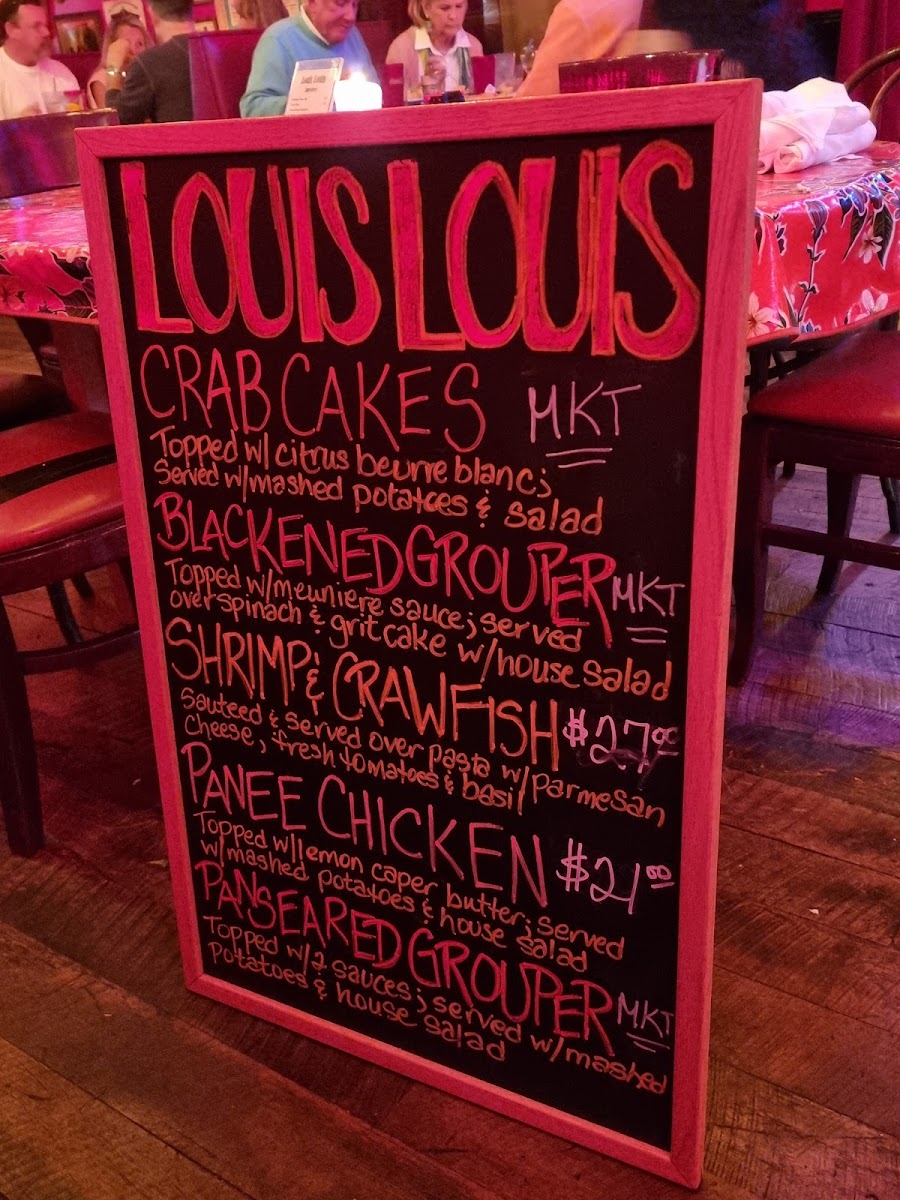 Louis Louis
LOUIS LOUIS
CRAB CAKES MKT
Topped w/ citrus beurre blanc;
Served w/mashed potatoes & salad
BLACKENED GROUPER MKT
Topped w/meuniere sauce; served
over spinach & grit cake w/house salad
SHRIMP & CRAWFISH $27.00
Sauteed & served over pasta w/parmesan
cheese, fresh tomatoes & basil
PANEE CHICKEN $21.00
Topped w/lemon caper butter; served
w/mashed potatoes & house salad
PANSEARED GROUPER MKT
Topped w/2 sauces; served w/mashed
potatoes & house salad